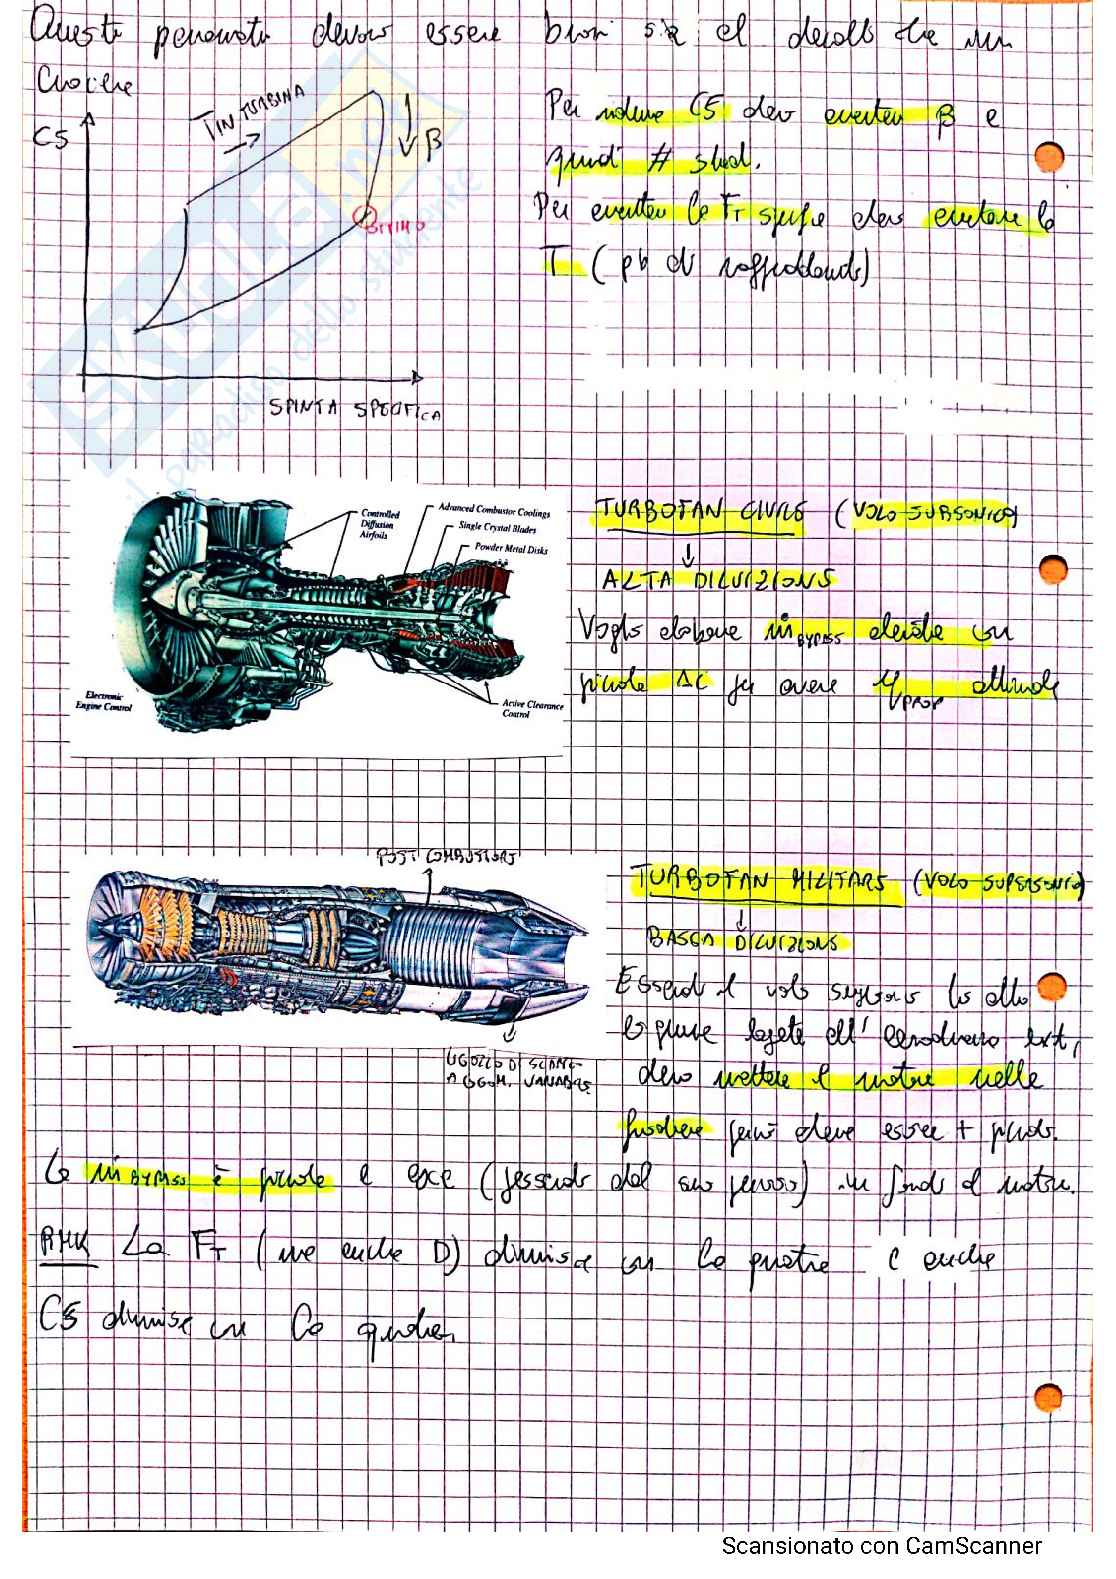 Questi parametri devono essere buoni sia al decollo che in
crociera
CS
T IN TURBINA
β
OTTIMO
SPINTA SPECIFICA
Per ridurre CS devo aumentare β e
quindi # stadi.
Per aumentare la FT specifica devo aumentare la
T (pb di raffreddamento)
SKUOLA.net
il paradiso dello studente
Controlled
Diffusion
Airfoils
Advanced Combustor Coolings
Single Crystal Blades
Powder Metal Disks
Electronic
Engine Control
Active Clearance
Control
TURBOFAN CIVILE (VOLO SUBSONICO)
↓
ALTA DILUIZIONE
Voglio elaborare ṁ BYPASS elevate con
piccole ΔC per avere η PROP ottimale
POST COMBUSTORE
UGELLO DI SCARICO
A GEOM. VARIABILE
TURBOFAN MILITARE (VOLO SUPERSONICO)
↓
BASSA DILUIZIONE
Essendo il volo supersonico
devo mettere il motore nella
fusoliera perciò deve essere + piccolo.
La ṁ BYPASS è piccola e esce (passando dal suo percorso) in fondo al motore.
RMK La FT (ma anche D) diminuisce con la quota e anche
CS diminuisce con la quota
Scansionato con CamScanner